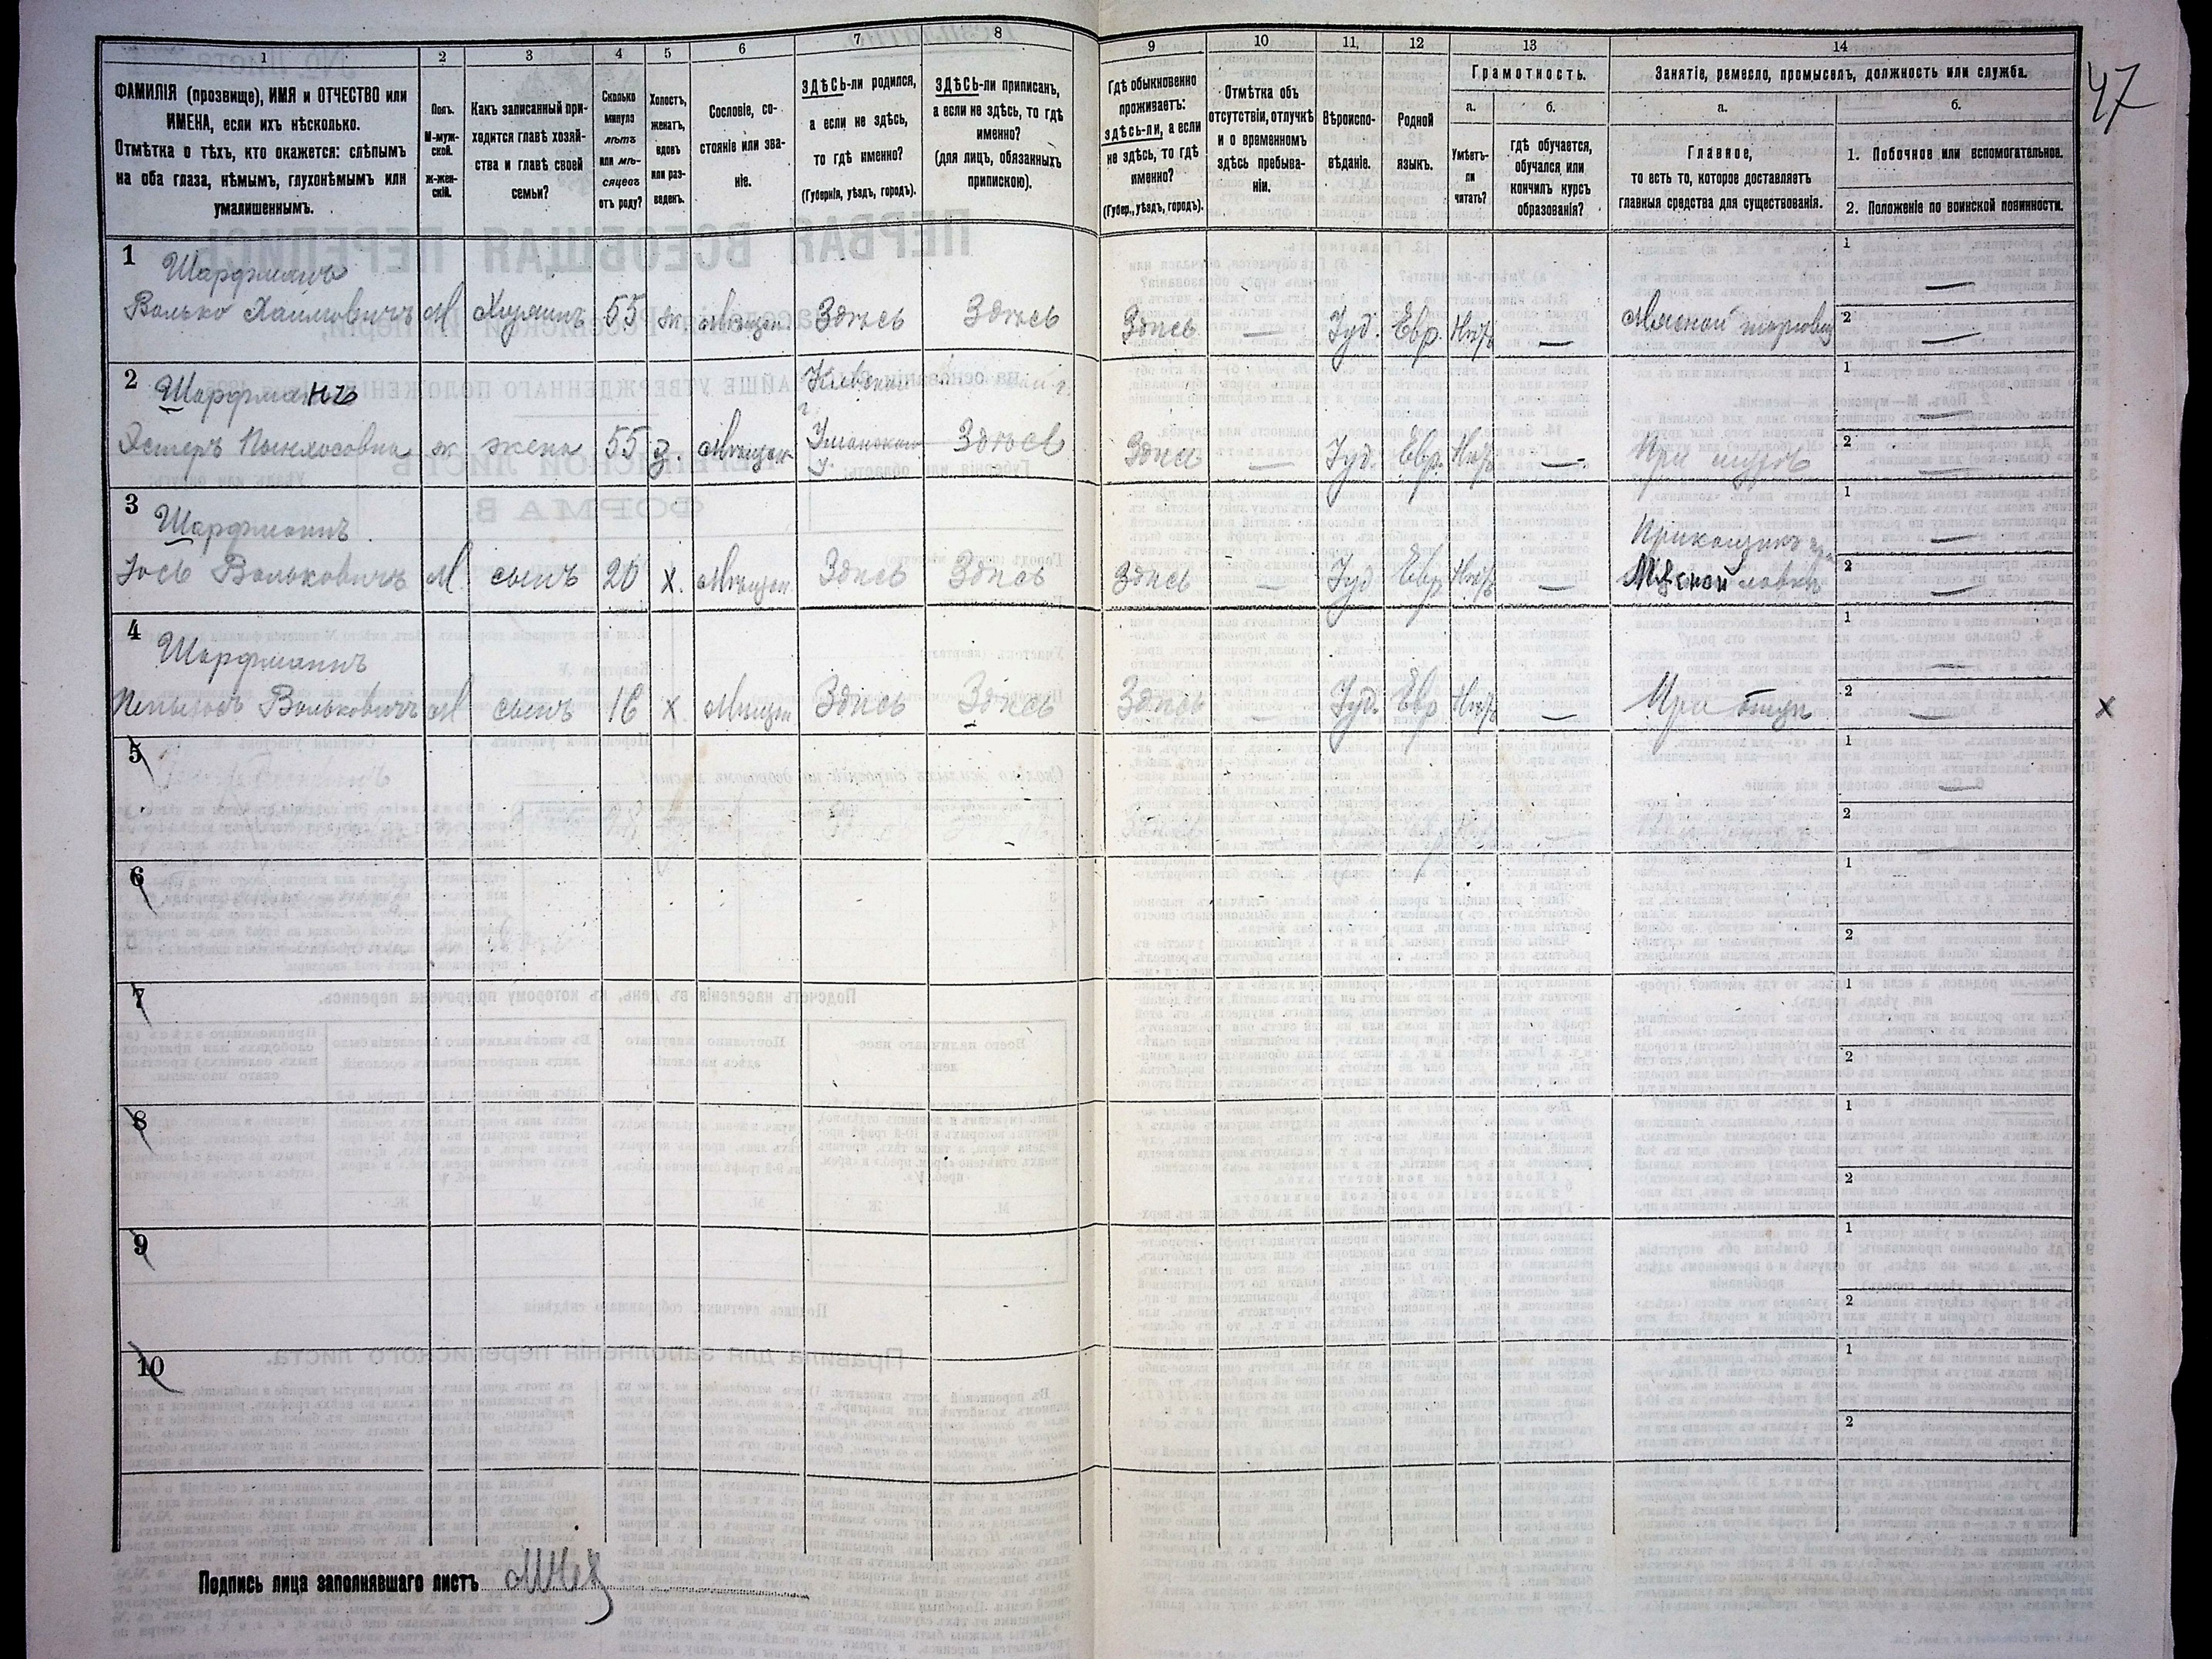 47
1 2 3 4 5 6 7 8 9 10 11, 12 13 14
ФАМИЛІЯ (прозвище), ИМЯ и ОТЧЕСТВО или
ИМЕНА, если ихъ нѣсколько.
Отмѣтка о тѣхъ, кто окажется: слѣпымъ
на оба глаза, нѣмымъ, глухонѣмымъ или
умалишеннымъ.
Полъ.
М-муж-
ской.
ж-жен-
скій.
Какъ записанный при-
ходится главѣ хозяй-
ства и главѣ своей
семьи?
Сколько
минуло
лѣтъ
или мѣ-
сяцевъ
отъ роду?
Холостъ,
женатъ,
вдовъ
или раз-
веденъ.
Сословіе, со-
стояніе или зва-
ніе.
ЗДѢСЬ-ли родился,
а если не здѣсь,
то гдѣ именно?
(Губернія, уѣздъ, городъ).
ЗДѢСЬ-ли приписан,
а если не здѣсь, то гдѣ
именно?
(для лицъ, обязанныхъ
припискою).
Гдѣ обыкновенно
проживаетъ:
здѣсь-ли, а если
не здѣсь, то гдѣ
именно?
(Губер., уѣздъ, городъ).
Отмѣтка объ
отсутствіи, отлучкѣ
и о временномъ
здѣсь пребыва-
ніи.
Вѣроиспо-
вѣданіе.
Родной
языкъ.
Грамотность.
а. б.
Умѣетъ-
ли
читать?
гдѣ обучается,
обучался или
кончилъ курсъ
образованія?
Занятіе, ремесло, промыселъ, должность или служба.
а. б.
Главное,
то есть то, которое доставляетъ
главныя средства для существованія.
1. Побочное или вспомогательное.
2. Положеніе по воинской повинности.
1 Шарфманъ
Волько Хаимовичъ М Хозяинъ 55 ж. Мѣщан. Здѣсь Здѣсь Здѣсь — Іуд. Евр. Нѣтъ — Мясной торговец
1 —
2 —
2 Шарфманъ Кіевской
г.
Эстеръ Пинхосовна ж жена 55 з. Мѣщан. Уманского Здѣсь Здѣсь — Іуд. Евр. Нѣтъ — При мужѣ
у.
1 —
2 —
3 Шарфманъ Прикащик
Іось Вольковичъ М. сынъ 20 х. Мѣщан. Здѣсь Здѣсь Здѣсь — Іуд. Евр. Нѣтъ — Мясной лавки
1 —
2 —
4 Шарфманъ
Вольковичъ М сынъ 16 х Мѣщан. Здѣсь Здѣсь Здѣсь — Іуд. Евр. Нѣтъ — При отцѣ
1 —
2 —
х
5
1 —
2
6
1
2
7
1
2
8
1
2
9
1
2
10
1
2
Подпись лица заполнявшаго листъ